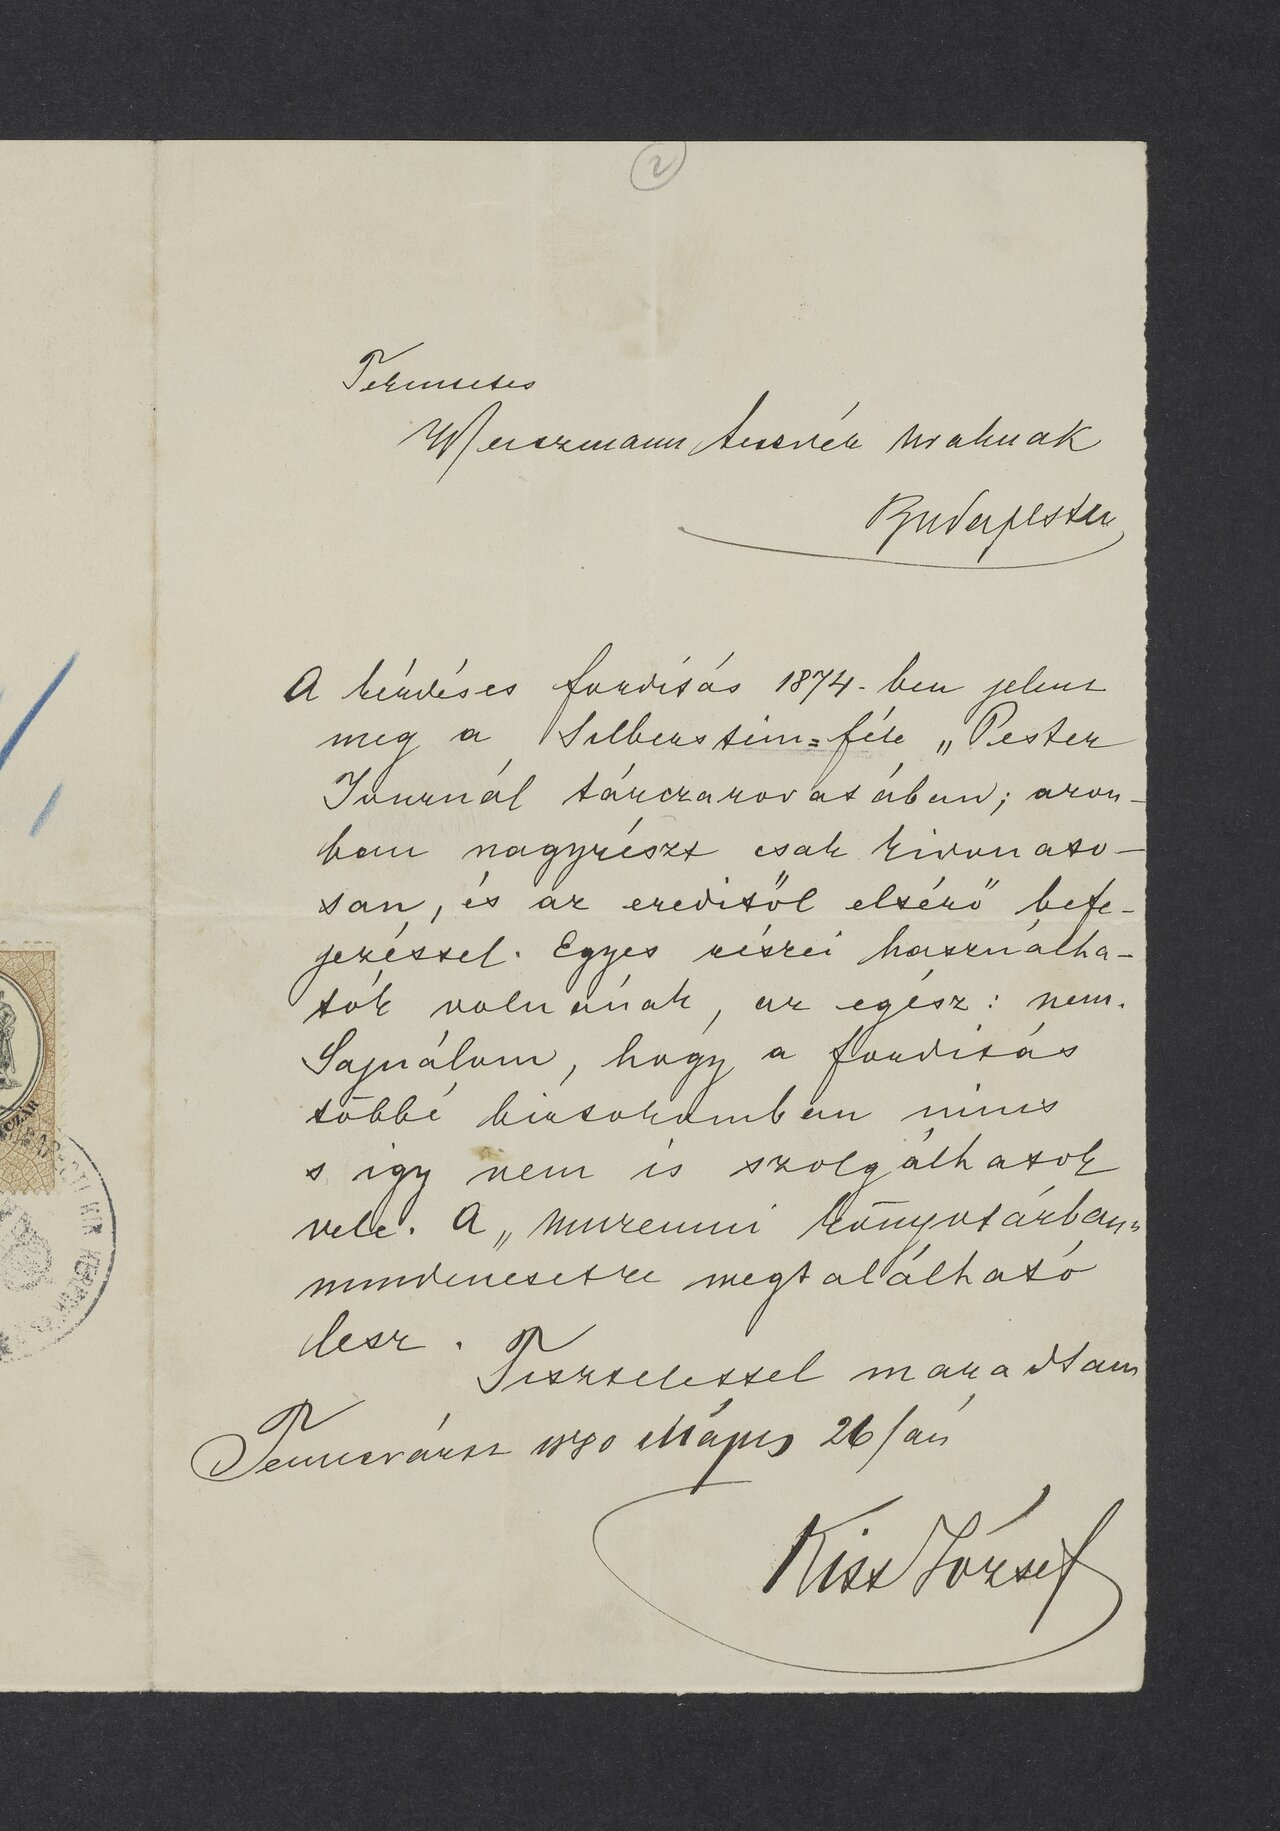 2
Tekintetes
Weiszmann testvér uraknak
Budapesten
A kérdéses fordítás 1874-ben jelent
meg a Silberstein=féle „Pester
Journál tárczarovatában; azon-
ban nagyrészt csak kivonato-
san, és az ereditől eltérő befe-
jezéssel. Egyes részei használha-
tók volnának, az egész: nem.
Sajnálom, hogy a fordítás
többé birtokomban nincs
s igy nem is szolgálhatok
vele. A „muzeumi könyvtárban"
mindenesetre megtalálható
lesz.
Tisztelettel maradtam
Temesvártt 1880 Május 26/án
Kiss József